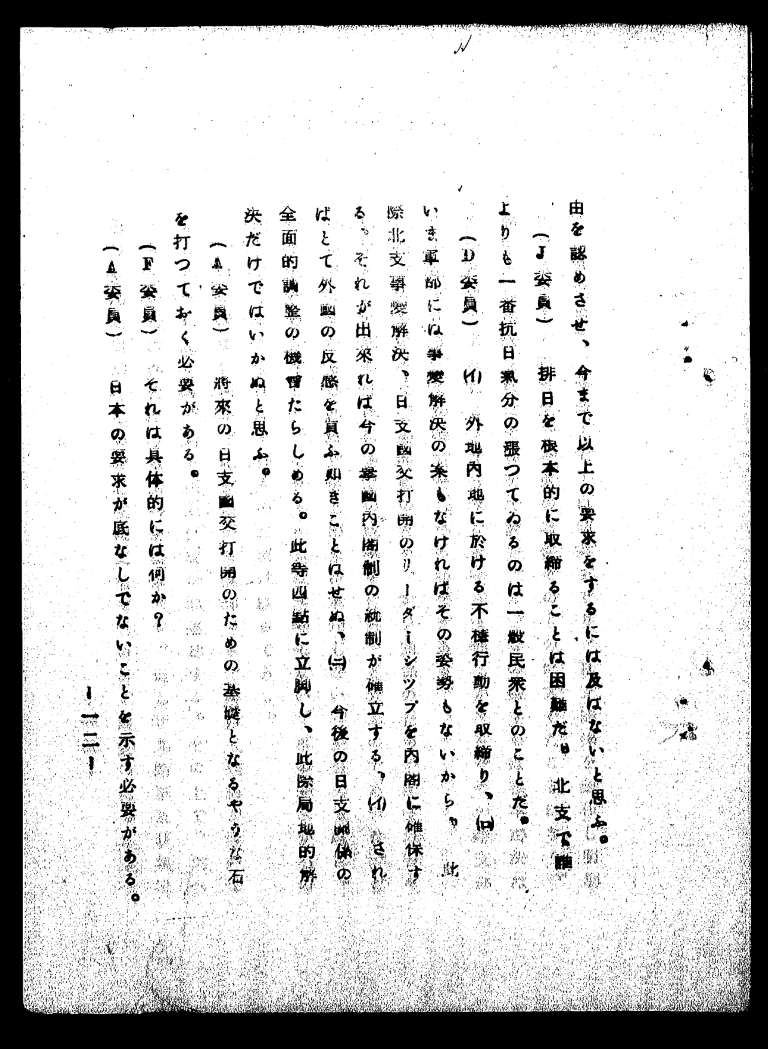 由を認めさせ、今まで以上の要求をするには及ばないと思ふ。
(J委員) 排日を根本的に取締ることは困難だ。北支で誰
よりも一番抗日氣分の張つてゐるのは一般民衆とのことだ。
(D委員) (イ) 外地內地に於ける不穩行動を取締り、(ロ)
いま軍部には事變解決の案もなければその姿勢もないから、此
際北支事變解決、日支國交打開のリーダーシツプを內閣に確保す
る。それが出來れば今の擧國內閣制の統制が確立する、(イ) され
ばとて外國の反感を買ふ如きことはせぬ、(ニ) 今後の日支關係の
全面的調整の機會たらしめる。此等四點に立脚し、此際局地的解
決だけではいかぬと思ふ。
(A委員) 將來の日支國交打開のための基礎となるやうな石
を打つておく必要がある。
(F委員) それは具体的には何か?
(A委員) 日本の要求が底なしでないことを示す必要がある。
ー一二ー